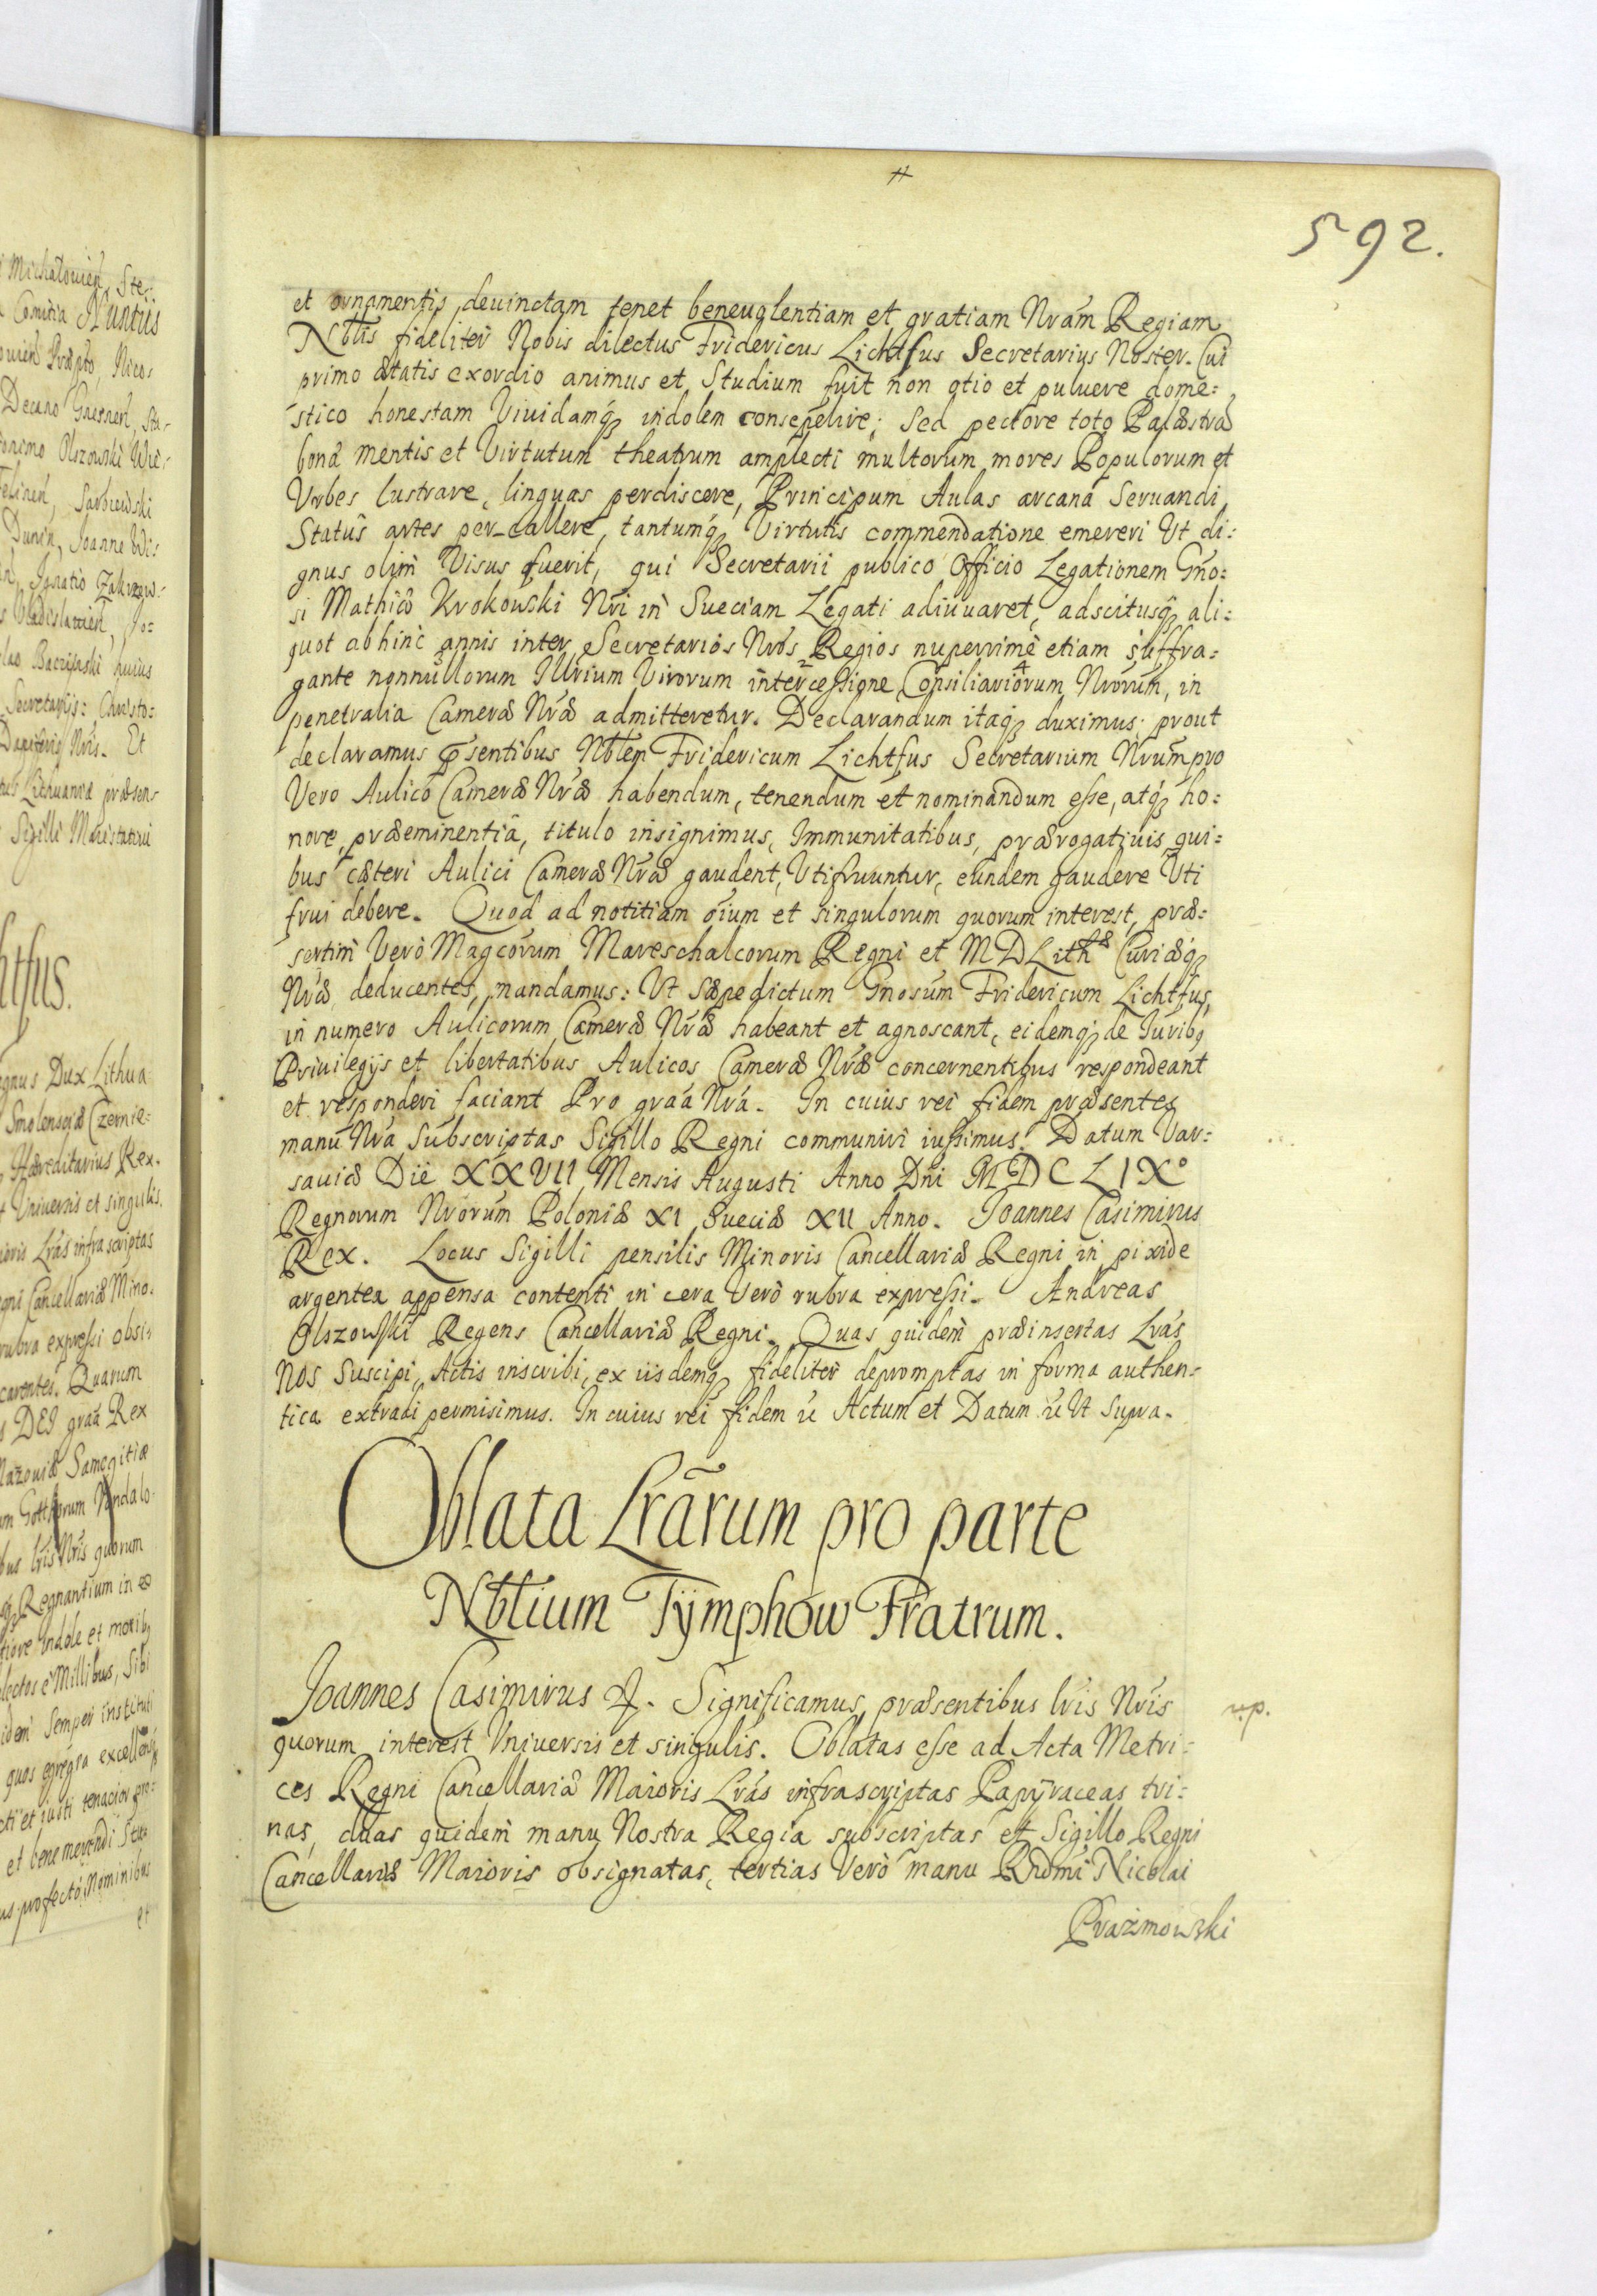 592.
et ornamentis devinctam tenet beneuolentiam et gratiam Nrãm Regiam
Nbtlis fideliter Nobis dilectus Fridericus Lichtfus Secretarius Noster. Cui
primo ætatis exordio animus et Studium fuit non otio et puluere dome:
stico honestam Viuidamq́ꝫ indolem consepelire; Sed pectore toto Palæstrã
bonæ mentis et Virtutum theatrum amplecti multorum mores Populorum et
Vrbes lustrare, linguas perdiscere, Principum Aulas arcana Seruandi
Statûs artes per-callere, tantumq́ꝫ Virtutis commendatione emereri Vt di:
gnus olim Visus fuerit, qui Secretarii publico Officio Legationem Gño:
si Mathiæ Krokowski Nri in Sueciam Legati adiuuaret, adscitusq́ꝫ ali:
quot abhinc annis inter Secretarios Nrõs Regios nuperrimè etiam suffra:
gante nonnullorum Illrium Virorum intercessione Consiliariorum Nrorum, in
penetralia Cameræ Nræ admitteretur. Declarandum itaq́ꝫ duximus: prout
declaramus p̃sentibus Nbtlem Fridericum Lichtfus Secretarium Nrum pro
Vero Aulico Cameræ Nræ habendum, tenendum et nominandum esse, atq́ꝫ ho:
nore, præeminentiâ, titulo insignimus, Immunitatibus, prærogatiuis, qui:
bus cæteri Aulici Cameræ Nræ gaudent, Vtifruuntur, eundem gaudere Vti
frui debere. Quod ad notitiam oĩum et singulorum quorum interest, præ:
sertim Verò Magcorum Mareschalcorum Regni et M D Lithæ Curiæq́ꝫ
Nræ deducentes, mandamus: Vt Sæpedictum Gnosum Fridericum Lichtfus,
in numero Aulicorum Cameræ Nræ habeant et agnoscant, eidemq́ꝫ de Iuribꝫ
Priuilegijs et libertatibus Aulicos Cameræ Nræ concernentibus respondeant
et responderi faciant Pro graã Nrã. In cuius rei fidem præsentes
manu Nrã Subscriptas Sigillo Regni communiri iussimus. Datum Var:
sauiæ Die XXVII Mensis Augusti Anno Dñi MDCLIXº
Regnorum Nrorum Poloniæ XI Sueciæ XII Anno. Joannes Casimirus
Rex. Locus Sigilli pensilis Minoris Cancellariæ Regni in pixide
argentea appensa contenti in cera Verò rubra expressi. Andreas
Olszowski Regens Cancellariæ Regni. Quas quidem præinsertas Lrãs
Nos Suscipi, Actis inscribi, ex iisdemq́ꝫ fideliter depromptas in forma authen:
tica extradi permisimus. In cuius rei fidem &c Actum et Datum &c Vt Supra.
Oblata Lrãrum pro parte
Nbtlium Tÿmphow Fratrum.
Joannes Casimirus &c. Significamus præsentibus lris Nris
quorum interest Vniuersis et singulis. Oblatas esse ad Acta Metri:
ces Regni Cancellariæ Maioris Lrãs infrascriptas Papÿraceas tri:
nas, duas quidem manu Nostra Regia subscriptas et Sigillo Regni
Cancellariæ Maioris obsignatas, tertias Verò manu Rndmi Nicolai
Prażmowski